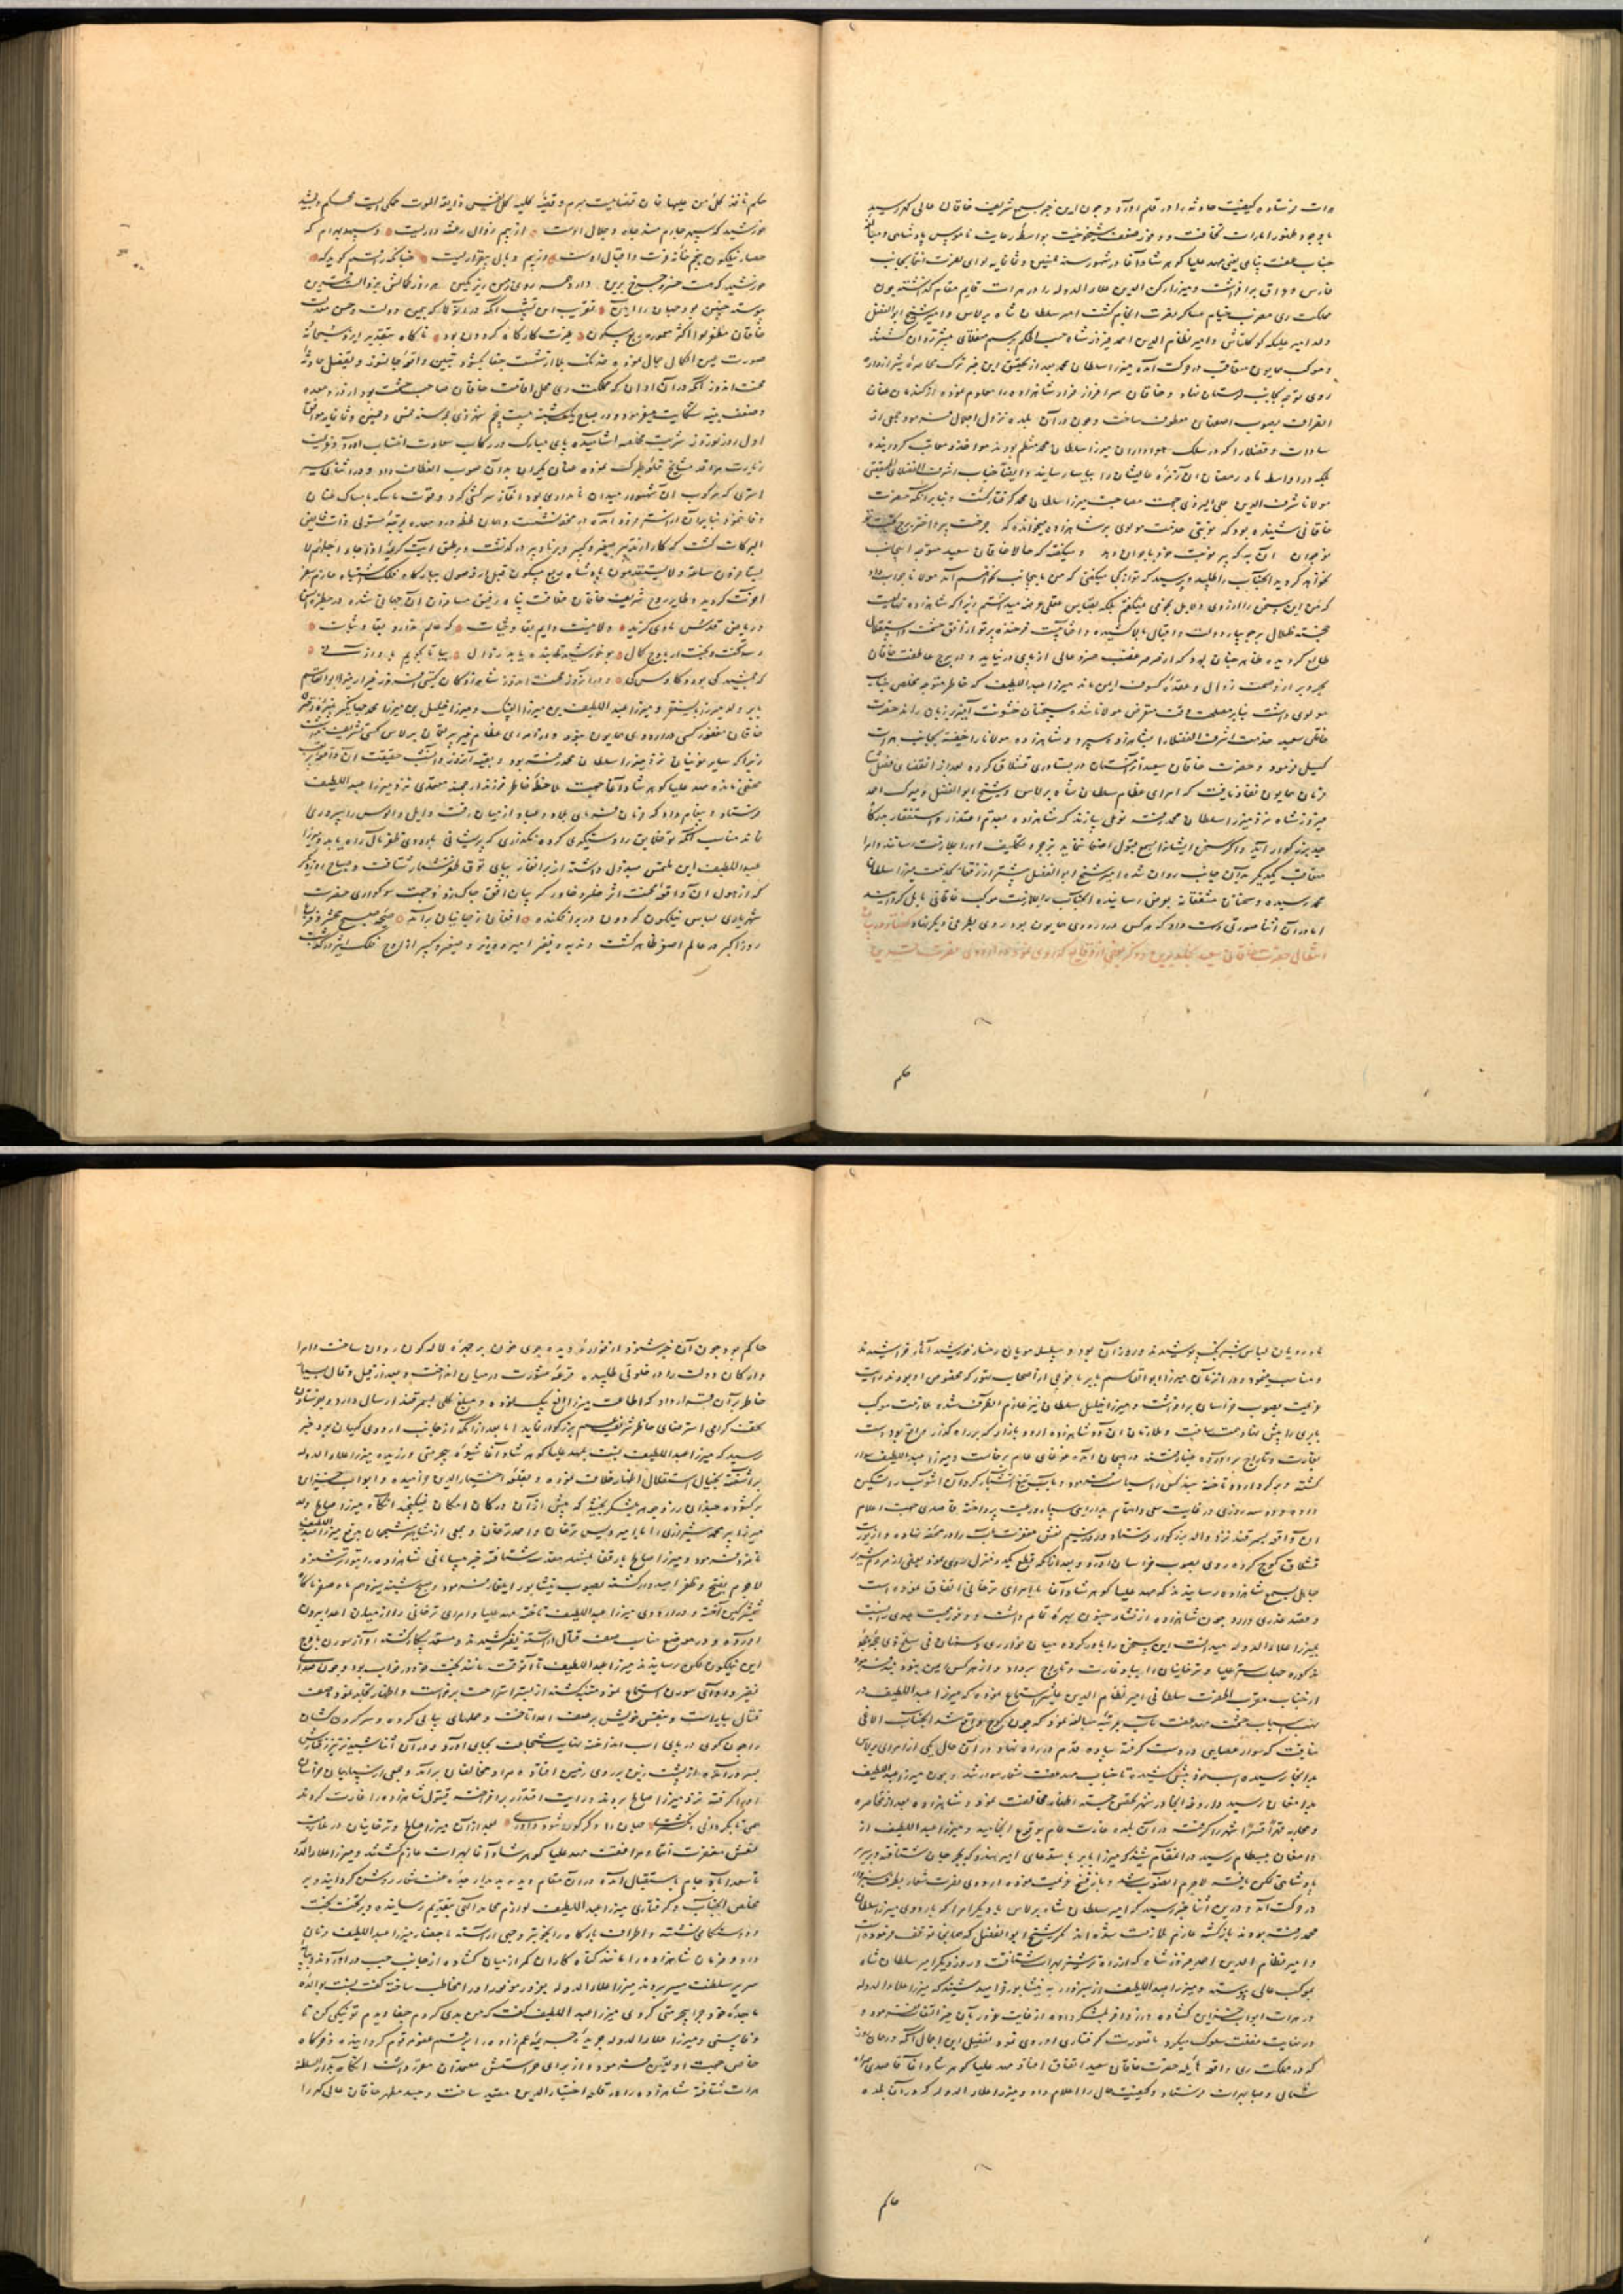 هرات فرستاده کیفیت حادثه را در قلم آورد و چون این خبر بسمع شریف خاقان عالی گهر رسید
با وجود ظهور امارات مخافت و وفور ضعف شیخوخیت بواسطه رعایت ناموس پادشاهی و مبالغه
جناب عفت پناهی یعنی مهد علیا گوهر شاد آغا در شهور سنه خمسین و ثمانمایه لوای نصرت انتما بجانب
فارس و عراق برافراشت و میرزا رکن الدین علاء الدوله را در هرات قایم مقام گذاشته چون
مملکت ری مضرب خیام عساکر نصرت انجام گشت امیر سلطان شاه برلاس و امیر شیخ ابوالفضل
ولد امیر علیکه کوکلتاش و امیر نظام الدین احمد فیروزشاه حسب الحکم برسم منقلای پیشتر روان گشتند
و موکب همایون متعاقب در حرکت آمده میرزا سلطان محمد بعد از تحقیق این خبر ترک محاصره شیراز داده
روی توجه بجانب لرستان نهاد و خاقان سرافراز فرار شاهزاده را معلوم نموده از کندمان عنان
انصراف بصوب اصفهان معطوف ساخت و چون در آن بلده نزول اجلال فرمود جمعی از
سادات و فضلا را که در سلک هواداران میرزا سلطان محمد منتظم بودند مواخذ و معاتب گردانیده
بلکه در اواسط ماه رمضان آن زمره عالیشان را بیاسا رسانید و ایضا جناب اشرف الفضلایی الحقیقی
مولانا شرف الدین علی الیزدی جهت مصاحبت میرزا سلطان محمد گرفتار گشت و بنابر آنکه حضرت
خاقانی شنیده بود که نوبتی خدمت مولوی بر شاهزاده میخوانده که چرخ پیر و اختر بخت تو
نوجوان آن به که پیر نوبت خود با جوان دهد و میگفته که حالا خاقان سعید متوجه اینجانب
نخواهد گردید آنجناب را طلبید و پرسید که تو از کجا میگفتی که من باینجانب نخواهم آمد مولانا جواب داد
که من این سخن را از روی دلایل نجومی نمیگفتم بلکه بقیاس عقلی عرضه میداشتم زیرا که شاهزاده نهالیست
خجسته ظلال بر جویبار دولت و اقبال بالا کشیده و اختریست فرخنده پرتو از افق حشمت و استقلال
طالع گردیده ظاهر چنان بود که از صرصر غضب خسرو عالی از پای در نیاید و در برج عاطفت خاقان
بحر و بر از وصمت زوال و عقده کسوف ایمن ماند میرزا عبداللطیف که خاطر متوجه تخلص جناب
مولوی داشت بنابر مصلحت وقت متعرض مولانا شده سخنان خشونت آمیز بر زبان راند حضرت
خاقان سعید خدمت اشرف الفضلا را بشاهزاده سپرد و شاهزاده مولانا را خفیة بجانب هرات
گسیل فرمود و حضرت خاقان سعید آن زمستان در پساوری قشلاق کرده بعد از انقضای فصل شتا
فرمان همایون نفاذ یافت که امرای عظام سلطان شاه برلاس و شیخ ابوالفضل و میرک احمد
فیروزشاه نزد میرزا سلطان محمد رفته نوعی سازند که شاهزاده بقدم اعتذار و استغفار بدرگاه
جد بزرگوار آید و اگر سخن ایشان بسمع قبول اصغا ننماید بزجر و تکلیف او را بملازمت رسانند و امرا
متعاقب یکدیگر بدان جانب روان شده امیر شیخ ابوالفضل پیشتر از رفقا بخدمت میرزا سلطان
محمد رسیده و سخنان مشفقانه بعرض رسانیده آنجناب را بملازمت موکب خاقانی مایل گردانید
اما در آن اثنا صورتی دست داد که هر کس در اردوی همایون بود روی بطرفی دیگر نهاد گفتار در بیان
انتقال حضرت خاقان سعید بخلد برین و ذکر بعضی از وقایع که روی نمود در اردوی نصرت قرین
حکم
حکم نافذ کل من علیها فان قضاییست مبرم و قضیه کلیه کل نفس ذایقة الموت حکمی است محکم
خورشید که سپهر چارم مسند جاه و جلال اوست از بیم زوال رعشه دارست و سپهبد بهرام که
حصار نیلگون پنجم خانه عزت و اقبال اوست از بیم وبال بیقرارست چنانکه راقم گوید که
خورشید که هست خسرو چرخ برین دارد همه روی زمین زیر نگین هر روز کمالش بزوالست قرین
پیوسته چنین بود جهان را آیین تقریب این تشبیب آنکه در آن روزگار که بیمن دولت و حسن معدلت
خاقان مظفر لوا اکثر معموره ربع مسکون غیرت کارگاه گردون بود ناگاه بتقدیر ایزد سبحانه
صورت عین الکمال جمال نموده خدنگ بلا از شست جفا بگشود تبیین واقعه جانسوز و تفصیل حادثه
محنت اندوز آنکه در آن اوان که مملکت ری محل اقامت خاقان صاحب حشمت بود از درد معده
و ضعف بنیه شکایت میفرمود و در صباح یکشنبه بیست و پنجم شهر ذی حجه سنه خمسین و ثمانمایه موافق
اول روز نوروز شربت مخلصه آشامیده پای مبارک در رکاب سعادت انتساب آورد و بعزیمت
زیارت مراقد مشایخ قلعه طبرک نموده عنان یکران بدان صوب انعطاف داد و در اثنای سیر
استری که مرکوب آن شهسوار میدان نامداری بود آغاز سرکشی کرد و قوت ماسکه بامساک عنان
وفا ننمود بنابر آن از استر فرود آمده در محفه نشست و همان لحظه درد معده بمرتبه مستولی ذات فایض
البرکات گشت که کار از تدبیر صغیر و کبیر و برنا و پیر در گذشت و بر طبق آیت کریمه اذا جاء اجلهم لا
یستأخرون ساعة و لا یستقدمون پادشاه ربع مسکون قبل از وصول ببارگاه فلک اشتباه عازم سفر
آخرت گردید و طایر روح شریف خاقان خلافت پناه رفیق مسافران آن جهانی شده در حظیره انس
و ریاض قدس ماوی گزید و لا میت دایم بقا و حیات که عالم ندارد بقا و ثبات
رسد تخت و بخت ار باوج کمال چو خورشید تابنده یابد زوال بیا تا بگویم باواز نی
که جمشید کی بود و کاوس کی و در آن روز محنت اندوز شاهزادگان گیتی فروز غیر از میرزا ابوالقاسم
بابر ولد میرزا بایسنغر و میرزا عبداللطیف بن میرزا الغ بیک و میرزا خلیل بن میرزا محمد جهانگیر نبیره دختر
خاقان مغفور کسی در اردوی همایون نبود و از امرای عظام جز پیر لقمان برلاس کسی تشریف نداشت
زیرا که سایر نوئینان نزد میرزا سلطان محمد رفته بود و بقیه آن روز و آن شب حقیقت آن واقعه
مخفی مانده مهد علیا گوهر شاد آغا جهت ملاحظه خاطر فرزند ارجمند معتمدی نزد میرزا عبداللطیف
فرستاد و پیغام داد که فرمان فرمای بلاد و عباد از میان رفت و ایل و الوس را سپرداری
نماند مناسب آنکه بوظایف راه دستگیری کرده نگذاری که پریشانی باردوی ظفر مآل راه یابد و میرزا
عبداللطیف این ملتمس مبذول داشته از برانغار بپای توق ظفر شعار شتافت و صباح روز دیگر
که از هول آن واقعه محنت اثر خسرو خاور گریبان افق چاک زد و جهت سوگواری حضرت
شهریاری لباس نیلگون گردون در بر افکنده افغان از جهانیان برآمد صبح محشر و فزع
روز اکبر در عالم اصغر ظاهر گشت و ندبه و نفیر امیر و وزیر و صغیر و کبیر از اوج فلک اثیر در گذشت
ماه رویان لباس شبرنگ پوشیدند و روز آن بود و سلسله مویان رخسار خورشید آثار خراشیدند
و مناسب نمود و در اثناء آن میرزا ابوالقاسم بابر با فوجی از اصحاب تهور که مخصوص او بودند رایت
عزیمت بصوب خراسان برافراشت و میرزا خلیل سلطان نیز عازم آنطرف شده ملازمت موکب
بابری را پیش نهاد همت ساخت و ملازمان آن دو شاهزاده اردو بازار که بر راه گذار واقع بود دست
بغارت و تاراج برآورده غبار فتنه در هیجان آمده غوغای عام برخاست و میرزا عبداللطیف سوار
گشته و بر گرد اردو تاخته چند کس را سیاست فرمود و بآب تیغ آتشبار گرد آن آشوب را تسکین
داده دو سه روزی در غایت سعی و اهتمام بدارایی سپاه و رعیت پرداخته قاصدی جهت اعلام
آن واقعه بسمرقند نزد والد بزرگوار فرستاد و روز سیم نعش مغفرت مآب را در محفه نهاده و از یورت
قشلاق کوچ کرده روی بصوب خراسان آورد و بعد از آنکه قطع یک دو منزل روی نمود بعضی از مردم شریر
جاهل بسمع شاهزاده رسانیدند که مهد علیا گوهر شاد آغا با امرای ترخانی اتفاق نموده است
و قصد غدری دارد چون شاهزاده از نشاه جنون بهره تمام داشت و وفور محبت مهد علیا نسبت
بمیرزا علاء الدوله میدانست این سخن را باور کرده میان بغداری و ستمکاری بست سلخ ذی حجه
مذکوره جهات ستر علیا و ترخانیان را بباد غارت و تاراج برداد و از هر کس ایمن نبود بند فرمود
از جناب مقرب الحضرت سلطانی امیر نظام الدین علیشیر استماع نموده که میرزا عبداللطیف در
نهب اسباب حشمت مهد عفت مآب بمرتبه مبالغه نمود که چون کوچ واقع شد آنجناب الاغی
نیافت که سوار عصایی در دست گرفته پیاده قدم در راه نهاد در آن حال یکی از امرای برلاس
بدانجا رسیده اسب خود پیش کشیده تا جناب مهد عفت شعار سوار شد و چون میرزا عبداللطیف
بدامغان رسید داروغه آنجا در شهر تحصن جسته اظهار مخالفت نمود و شاهزاده بعد از محاصره
و محاربه قهرا قسرا شهر را گرفت در آن بلده غارت عام بوقوع انجامید و میرزا عبداللطیف از
دامغان ببسطام رسید در آن مقام شنید که میرزا بابر باستدعای امیر هندوکه بجرجان شتافته و بر سریر
پادشاهی تمکن یافته لاجرم از آنصوب فسخ عزیمت نموده اردوی نصرت شعار بطرف سبزوار
در حرکت آمد و در این اثنا خبر رسید که امیر سلطان شاه برلاس با دیگر امرا که باردوی میرزا سلطان
محمد رفته بودند بازگشته عازم ملازمت شده اند مگر شیخ ابوالفضل که همانجا توقف فرموده است
و امیر نظام الدین احمد فیروزشاه که از راه ترشیز بهرات شتافت و روز دیگر امیر سلطان شاه
بموکب عالی پیوسته و میرزا عبداللطیف از سبزوار به نیشابور خرامید شنید که میرزا علاء الدوله
در هرات ابواب خزاین گشاده و زر وافر بلشکر داده از غایت غرور بآن خبر التفات نفرمود و
در نهایت غفلت سلوک میکرد تا بصورت گرفتاری او روی نمود تفصیل این اجمال آنکه در همان روز
که در مملکت ری واقعه هایله حضرت خاقان سعید اتفاق افتاد مهد علیا گوهر شاد آغا قاصدی همراه
شمال و صبا بهرات فرستاد و کیفیت حال را اعلام داد و میرزا علاء الدوله که در آن بلده
حاکم
حاکم بود چون آن خبر شنود از فوران دیده جوی خون بر چهره لاله گون روان ساخت و امرا
و ارکان دولت را در خلوتی طلبیده قرعه مشورت در میان انداخت و بعد از قیل و قال بسیار
خاطر بر آن قرار داد که اطاعت میرزا الغ بیک نموده و مبلغ کلی بسمرقند ارسال دارد و بفرستادن
تحف گرامی استرضای خاطر شریف عم بزرگوار نماید اما بعد از آنکه از جانب اردوی کیهان پوی خبر
رسید که میرزا عبداللطیف نسبت بمهد علیا گوهر شاد آغا شیوه بیحرمتی ورزیده میرزا علاء الدوله
برآشفته بخیال استقلال اظهار خلاف نموده و بقلعه اختیار الدین خرامیده و ابواب خزاین
برگشوده چندان زر و جوهر بلشکر بخشید که پیش از آن در کان امکان نمیگنجید آنگاه میرزا صالح ولد
میرزا پیر محمد شیرازی را با امیر اویس ترخان و احمد ترخان و جمعی از مشاهیر شجعان بدفع میرزا عبداللطیف
نامزد فرمود و میرزا صالح با رفقا بمشهد مقدس شتافته خبر بی سامانی شاهزاده را بتواتر شنود
لاجرم بفتح و ظفر امیدوار گشته بصوب نیشابور ایلغار فرمود و صبح شنبه سیزدهم ماه صفر ناگاه
شمشیر کین آخته و در اردوی میرزا عبداللطیف تاخته مهد علیا و امرای ترخانی را از میان اعدا بیرون
آورده و در موضع مناسب صف قتال آراسته نفیر کشیدند و مستعد پیکار گشته آواز سورن باوج
این نیلگون فلک رسانیدند میرزا عبداللطیف تا آنوقت مانند بخت خود در خواب بود و چون صدای
نفیر و آوای سورن استماع نمود متنبه گشته از بستر استراحت برخاست و اظهار تجلد نمود و صف
قتال بیاراست و بنفس خویش بر صف اعدا تاخت و حمله های پیاپی کرده و سر گردن کشان
را چون گوی در پای اسب انداخته نهایت شجاعت بجای آورد و در آن اثنا
بسر درآمده از پشت زین بر روی زمین افتاد و مراد مخالفان برآمد و جمعی از سپاهیان خراسان
او را گرفته نزد میرزا صالح بردند و رایت اقتدار برافراخته قیتول شاهزاده را غارت کردند
همی تا بگردانی انگشتری جهان را دگرگون شود داوری بعد از آن میرزا صالح و ترخانیان در ملازمت
نعش مغفرت انتما و مرافقت مهد علیا گوهر شاد آغا بهرات عازم گشتند و میرزا علاء الدوله
تا سعدآباد جام باستقبال آمده در آن مقام دیده بدیدار جده عفت شعار روشن گردانید و بر
تخلص آنجناب و گرفتاری میرزا عبداللطیف لوازم محامد الهی بتقدیم رسانیده و بر تخت بخت
و دوستکامی نشسته و اطراف بارگاه را بخوبتر وجهی آراسته باحضار میرزا عبداللطیف فرمان
داد و فرمان شاهزاده را مانند گناه کاران کمر از میان گشاده از جانب چپ در آوردند و بپایه
سریر سلطنت مسیر بردند میرزا علاء الدوله بغرور موفور او را مخاطب ساخته گفت نسبت بوالده
ما جده خود چرا بیحرمتی کردی میرزا عبداللطیف گفت که من بدی کردم جفا دیدم تو نیکی کن تا
وفا بینی و میرزا علاء الدوله جریده جریمه عم زاده را برقم عفو مرقوم گردانیده و خرگاه
خاص جهت او تعیین فرمود و از برای حراستش معتمدان مقرر داشت آنگاه بدار السلطنه
هرات شتافته شاهزاده را در قلعه اختیار الدین مقید ساخت و جسد مطهر خاقان عالی گهر را